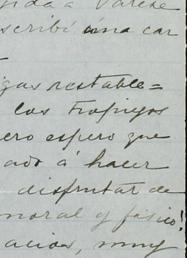 nida a Varese
scribí una car
gas restable=
los trofingos
ero espero que
ado á hacer
disfrutar de
moral y físico!
acias, muy